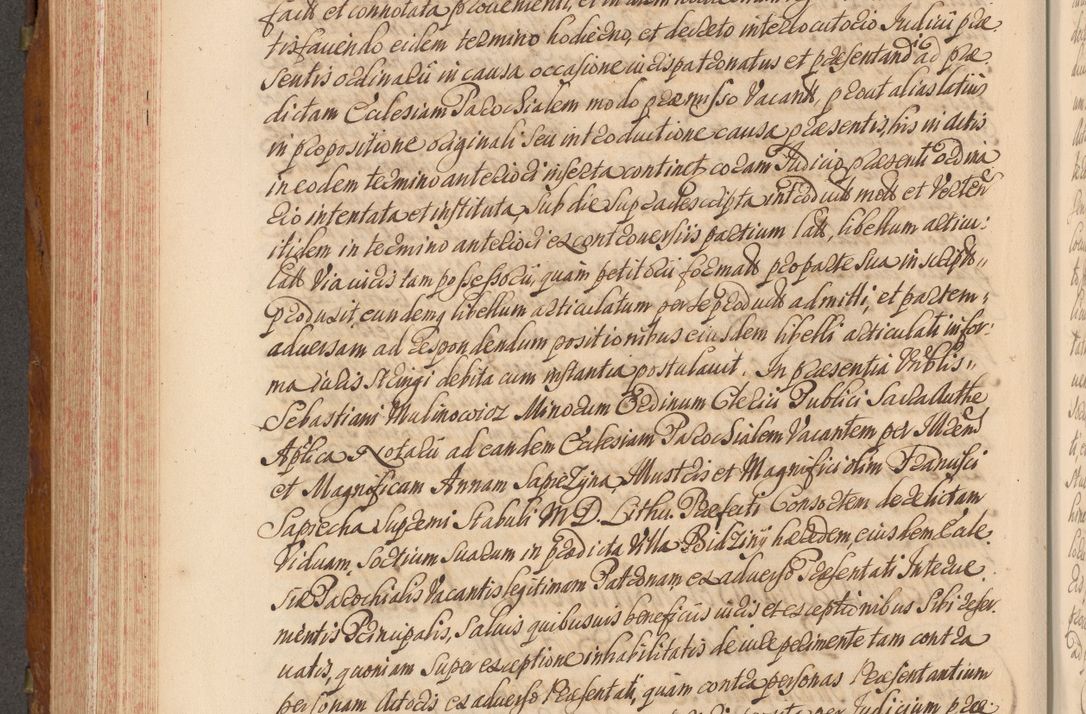 facti et connotata provenienti, et in
tisfaciendo eidem termino hodierno, et decreto interlocutorio Judicii præ
sentis ordinarii in causa occasione iurispatronatus et præsentand ad præ
dictam Ecclesiam Parochialem modo præmisso Vacant, prout alias latius
in propositione originali seu introductione causa præsentis, his in actis
in eodem termino anteriori inserta continet coram Judicio præsenti ordina
rio intentata et instituta, sub die supradescripta introduct mott et Verten
itidem in termino anteriori ex controversiis partium latt, libellum articu:
latt Via iuris tam possessorii, quam petitorii formatt pro parte sua in script,,
produxit, eundemq libellum articulatum per se product admitti, et partem,
adversam ad respondendum positionibus eiusdem libelli articulati in for:
ma iuris stringi debita cum instantia postulavit. In præsentia Vrblis,,
Sebastiani Mulinowicz Minorum Ordinum Clerici Publici Sacra Authe
Aplica Notarii ad eandem Ecclesiam Parochialem Vacantem per Illrem
et Magnificam Annam Sapieżyna, Illustris et Magnifici olim Francisci
Sapiecha Supremi Stabuli M. D. Lithu. Præfecti Consortem derelictam
Viduam, Sortium suarum in prædicta Villa Bidziny hæredem eiusdem Eccle
siæ Parochialis Vacantis legitimam Patronam, ex adverso Præsentati Interve
nientis Principalis, Salvis quibusvis beneficiis iuris et exceptionibus Sibi reser
vatis, quoniam super exceptione inhabilitatis de iure perimente tam contra
personam Actoris ex adverso Præsentati, quam contra personas Præsentantium
per Judicium præ